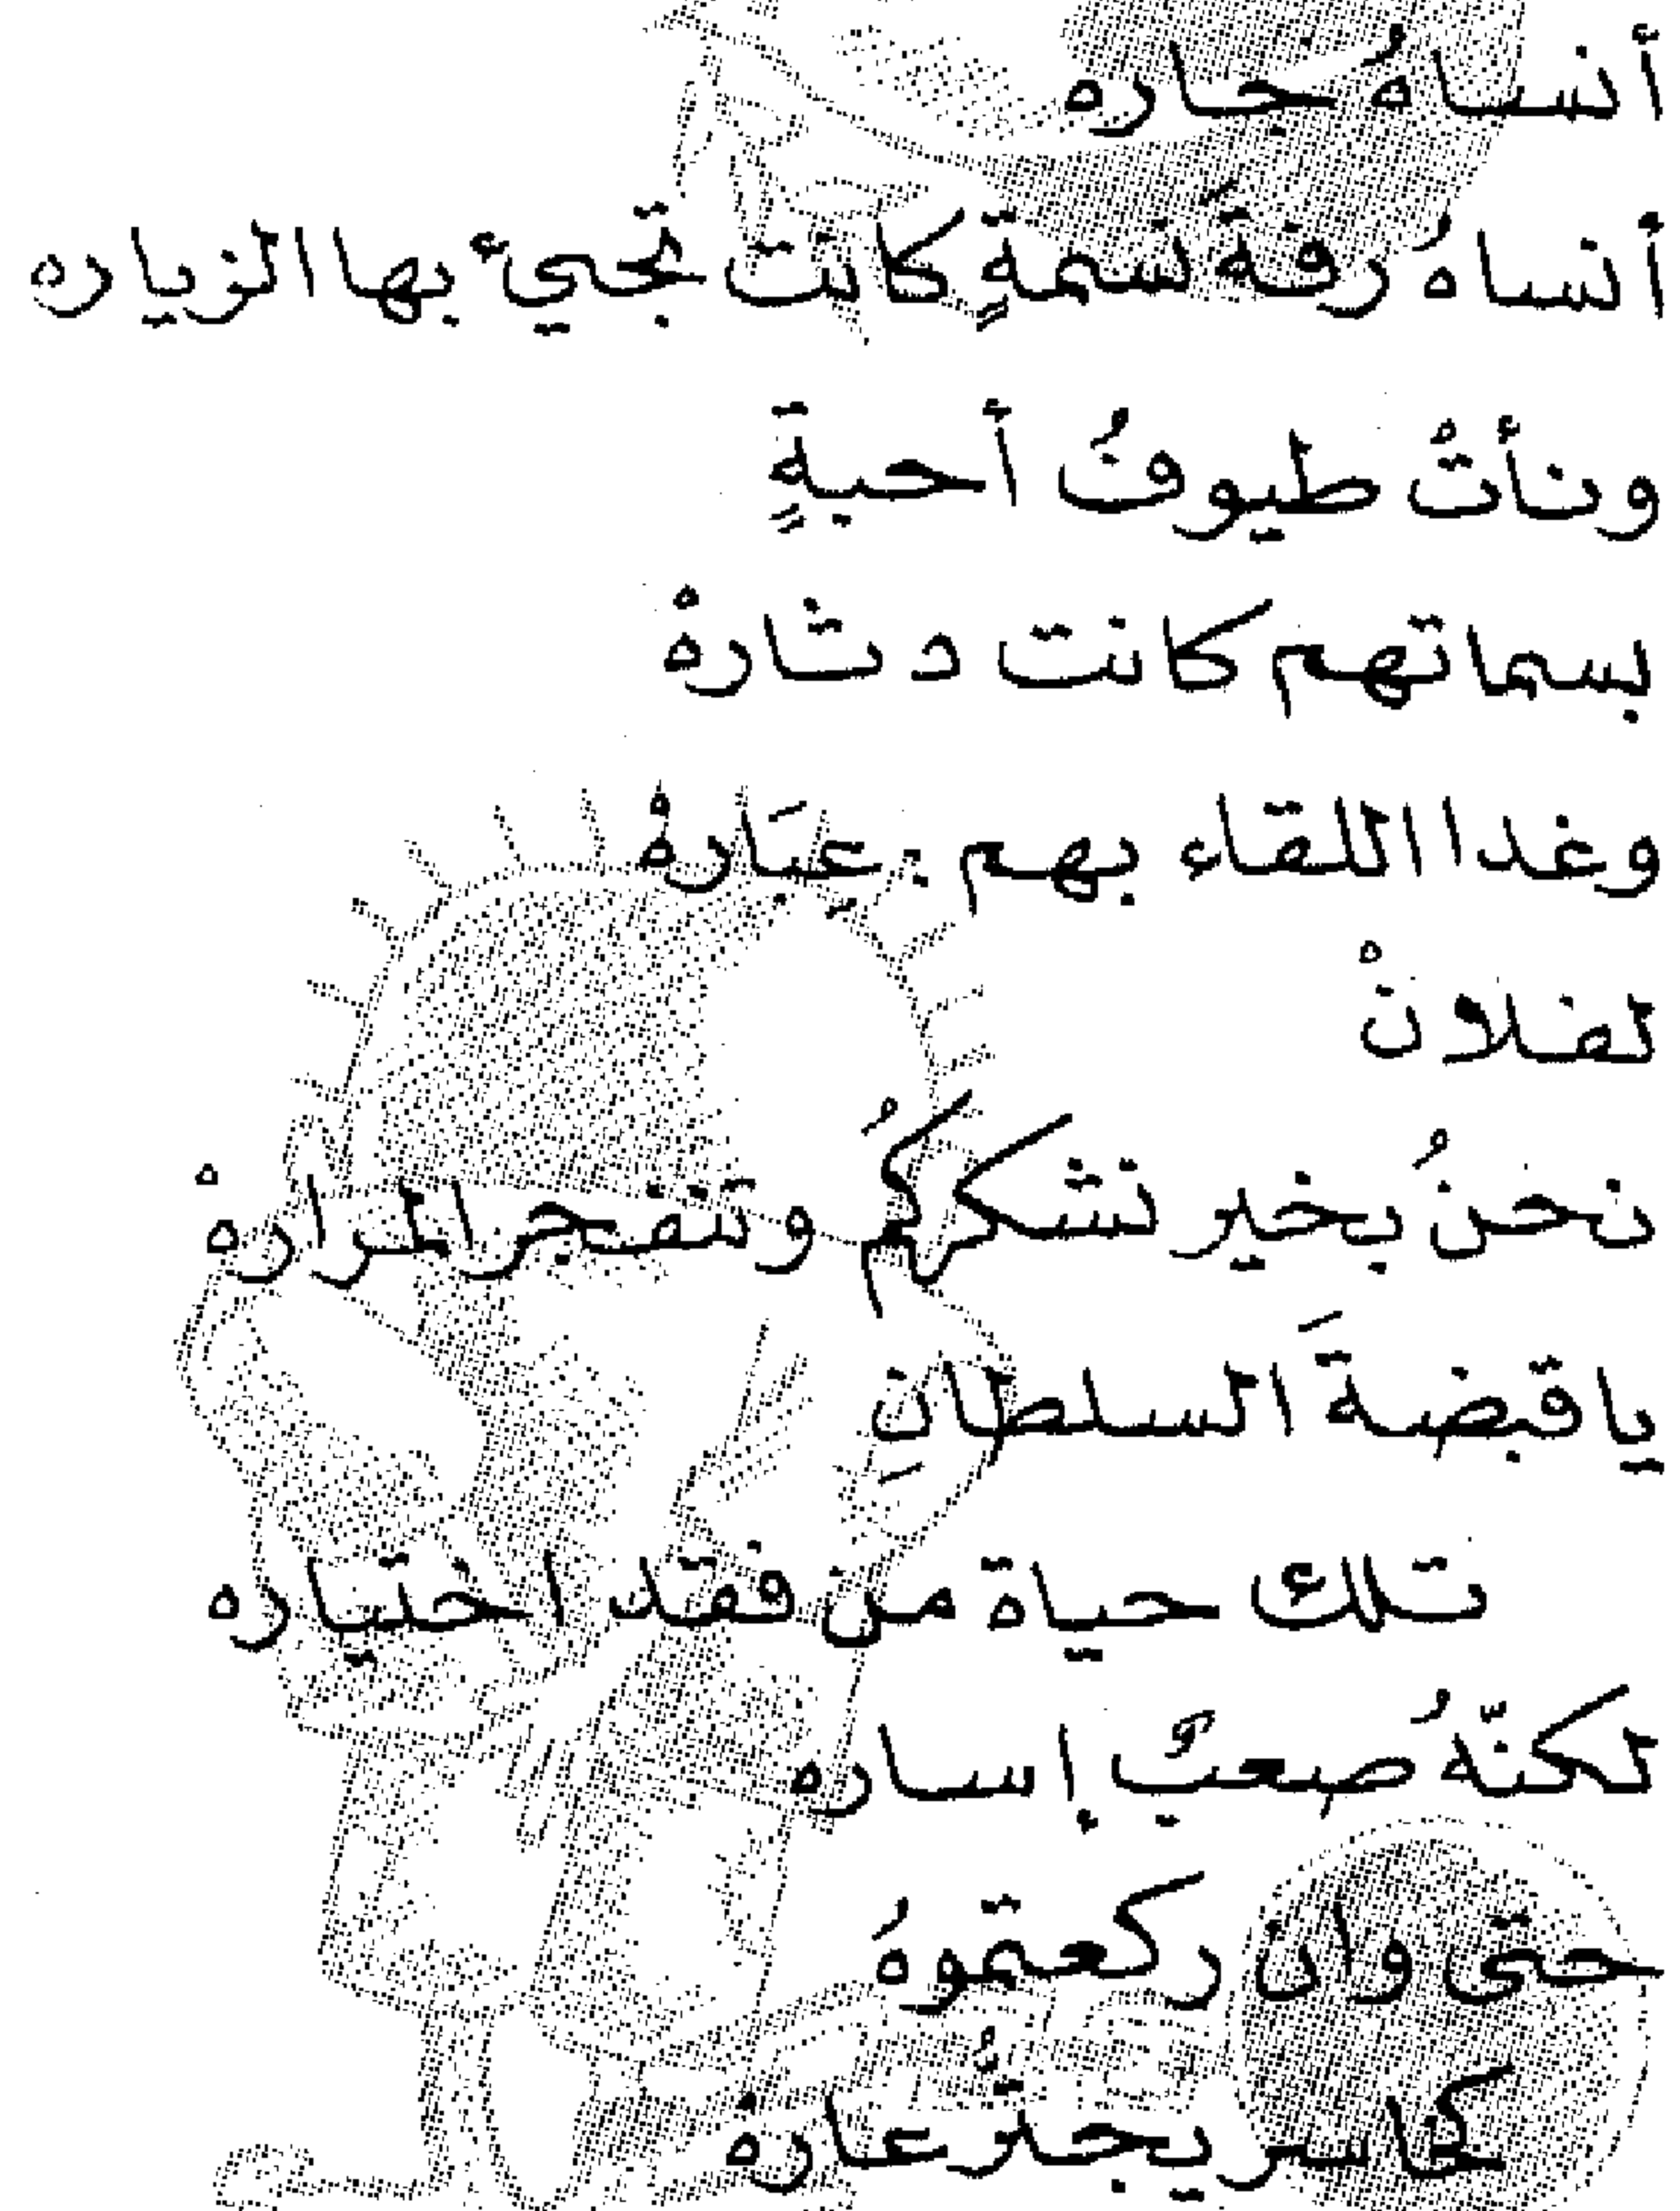 أنساهُ جاره
أنساهُ رفةَ نسمةٍ كانت تجيئ بها الزياره
ونأتْ طيوفُ أحبةٍ
بسماتهم كانت دثارهْ
وغدا اللقاء بهم : عِبَارهْ
لفلانْ
نحنُ بخير نشكركُم وتنفجر المرارهْ
يا قبضةَ السلطانِ
تلك حياة من فقد اختياره
لكنّهُ صعبٌ إساره
حتى وان ركعتموهُ
يجترُّ عارهْ